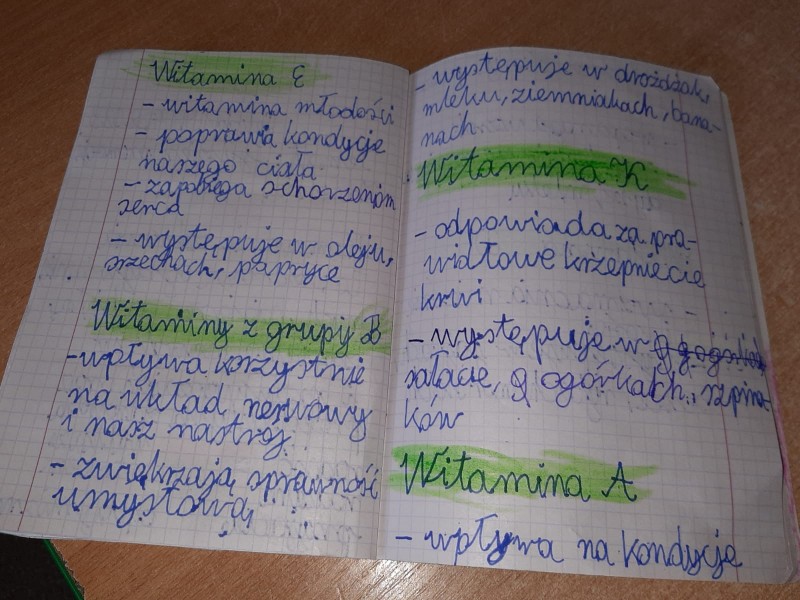 Witamina E
- witamina młodości
- poprawia kondycje
naszego ciała
- zapobiega schorzenióm
serca
- występuje w oleju,
orzechach, papryce
Witaminy z grupy B
- wpływa korzystnie
na układ nerwowy
i nasz nastrój
- zwiękrzają sprawność
umysłową
- występuje w drożdżak,
mleku, ziemniakach, bana-
nach
Witamina K
- odpowiada za pra-
widłowe krzepniecie
krwi
- występuje w
sałacie, ogórkach, szpina-
ków
Witamina A
- wpływa na kondycje